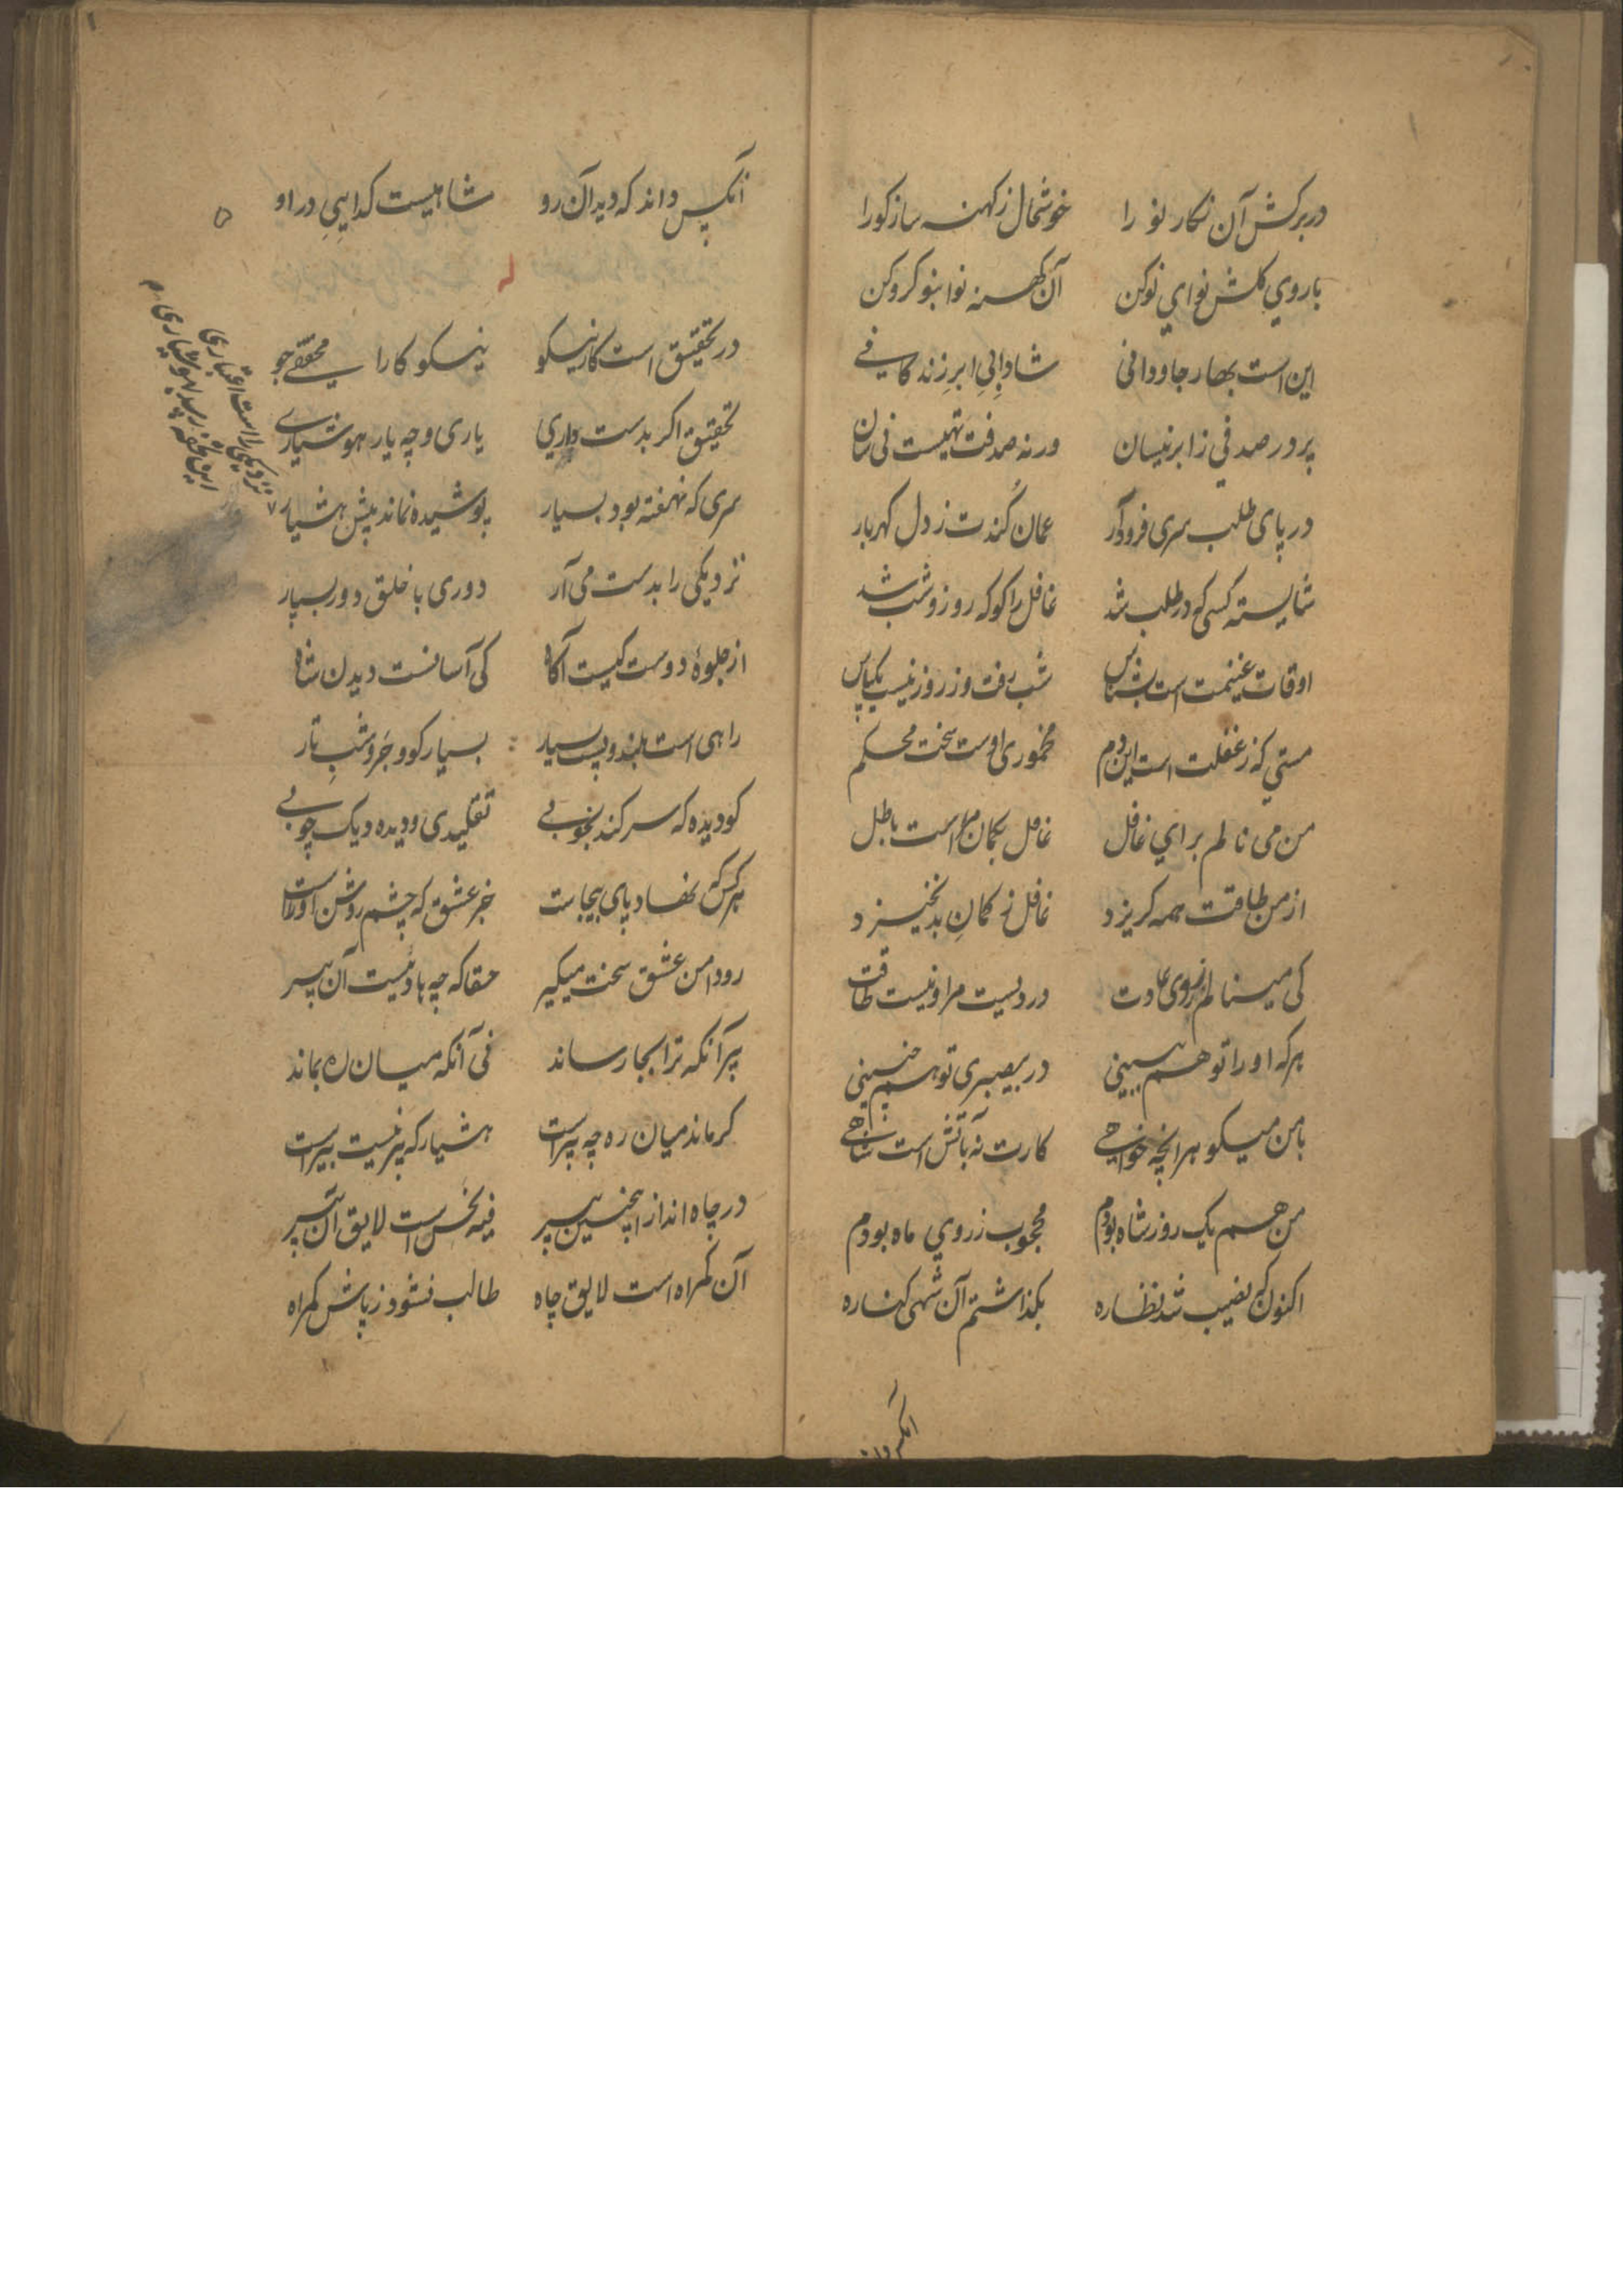 در برکش آن نکار نو را خوشحال ز کهنه ساز کو را
با روی کلش نوای نو کن آن کهنه نوا بنو کرو کن
این است بهار جاودانی شادابی ابر زندکانی
پر در صدفی ز ابر نیسان ورنه صدفت تهیست فی شان
در پای طلب سری فرود آر عمان کندت ز دل کهربار
شایسته کسی که در طلب شد غافل را کو که روز و شب شد
اوقات غنیمت است بشناس شب رفت و ز روز نیست یکپاس
مستی که ز غفلت است این دم مخموری اوست سخت محکم
من می نالم برای غافل غافل بکمان است باطل
از من طاقت همه کریزد غافل ز کمان بد نخیزد
کی مینالم از روی عادت دردیست مرا و نیست طاقت
هر که او را تو هم ببینی در بیصبری تو هم چنینی
با من میکو هر انچه خواهی کارت نه بآتش است
من هم یک روز شاه بودم محجوب ز روی ماه بودم
اکنون که نصیب شد نظاره بکذاشتم آن شهی کناره
آنکس داند
آنکس داند که دید آن رو شاهیست کدایی در او
در تحقیق است کار نیکو نیکو کارا محققی جو
تحقیق اکر بدست داری یاری و چه یار هوشیاری
سری که نهفته بود بسیار پوشیده نماند پیش هشیار
نزدیکی را بدست می آر دوری با خلق دور بسپار
از جلوۀ دوست کیست آکاه کی آسانست دیدن شاه
راهی است بلند و پست بسیار بسیار کو و جر و شب تار
کو دیده که سر کند بخوبی تقلیدی و دیده و یک چوبی
هر کس که نهاد پای بیجاست جز عشق که چشم روشن او راست
رو دامن عشق سخت میکیر حقا که چه هادیست آن پیر
پیر آنکه ترا بجا رساند فی آنکه میان ره بماند
کر ماند میان ره چه پیر است هشیار که پیر نیست بیر است
در چاه انداز اینچنین پیر فیه نخس است لایق آن پیر
آن کمراه است لایق چاه طالب نشود ز پاش کمراه
نزدیکی راست اعتباری